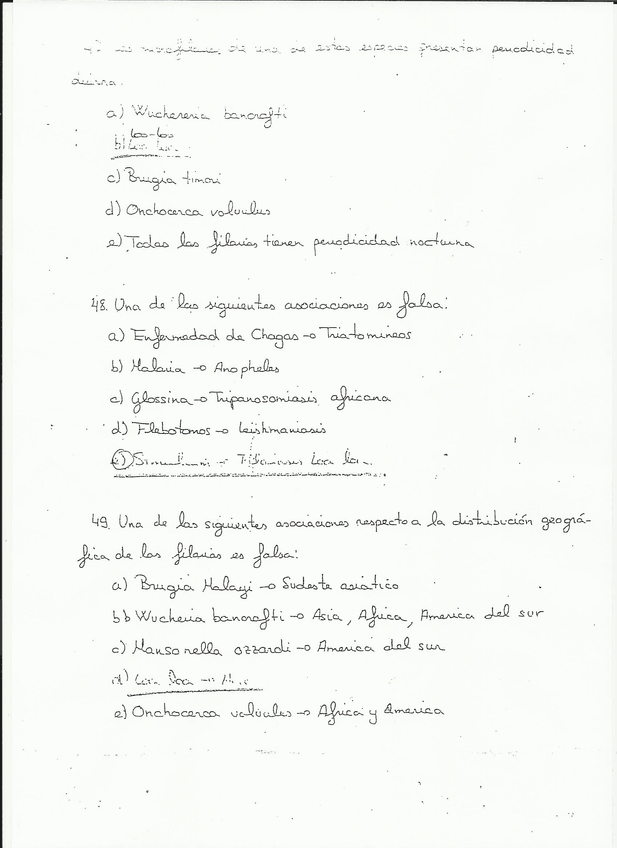 47 Las microfilarias de una de estas especies presentan periodicidad
diurna.
a) Wuchereria bancrofti
Loa-Loa
b) Loa Loa
c) Brugia timori
d) Onchocerca volvulus
e) Todas las filarias tienen periodicidad nocturna
48. Una de las siguientes asociaciones es falsa:
a) Enfermedad de Chagas → Triatomineos
b) Malaria → Anopheles
c) Glossina → Tripanosomiasis africana
d) Flebotomos → Leishmaniasis
e) Simulium → Filariasis Loa loa
49. Una de las siguientes asociaciones respecto a la distribución geográ-
fica de las filarias es falsa:
a) Brugia Malayi → Sudeste asiático
b) Wucheria bancrofti → Asia, Africa, America del sur
c) Mansonella ozzardi → America del sur
d) Loa Loa →
e) Onchocerca volvulus → Africa y America